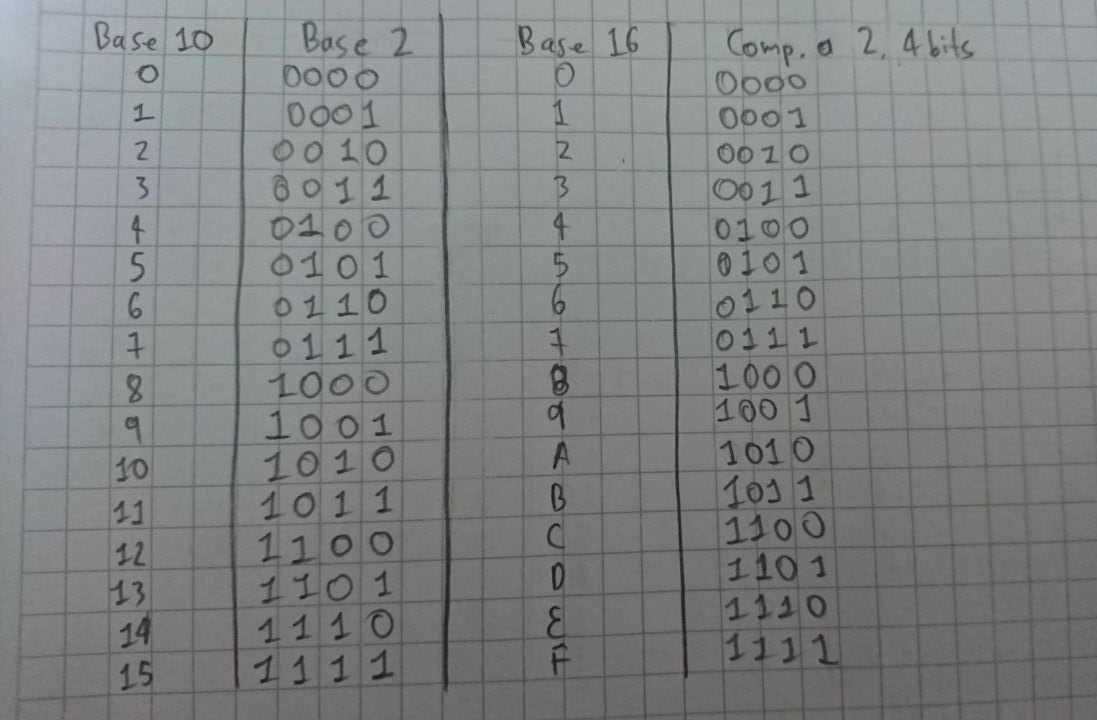 Base 10 Base 2 Base 16 Comp. a 2, 4 bits
0 0000 0 0000
1 0001 1 0001
2 0010 2 0010
3 0011 3 0011
4 0100 4 0100
5 0101 5 0101
6 0110 6 0110
7 0111 7 0111
8 1000 8 1000
9 1001 9 1001
10 1010 A 1010
11 1011 B 1011
12 1100 C 1100
13 1101 D 1101
14 1110 E 1110
15 1111 F 1111